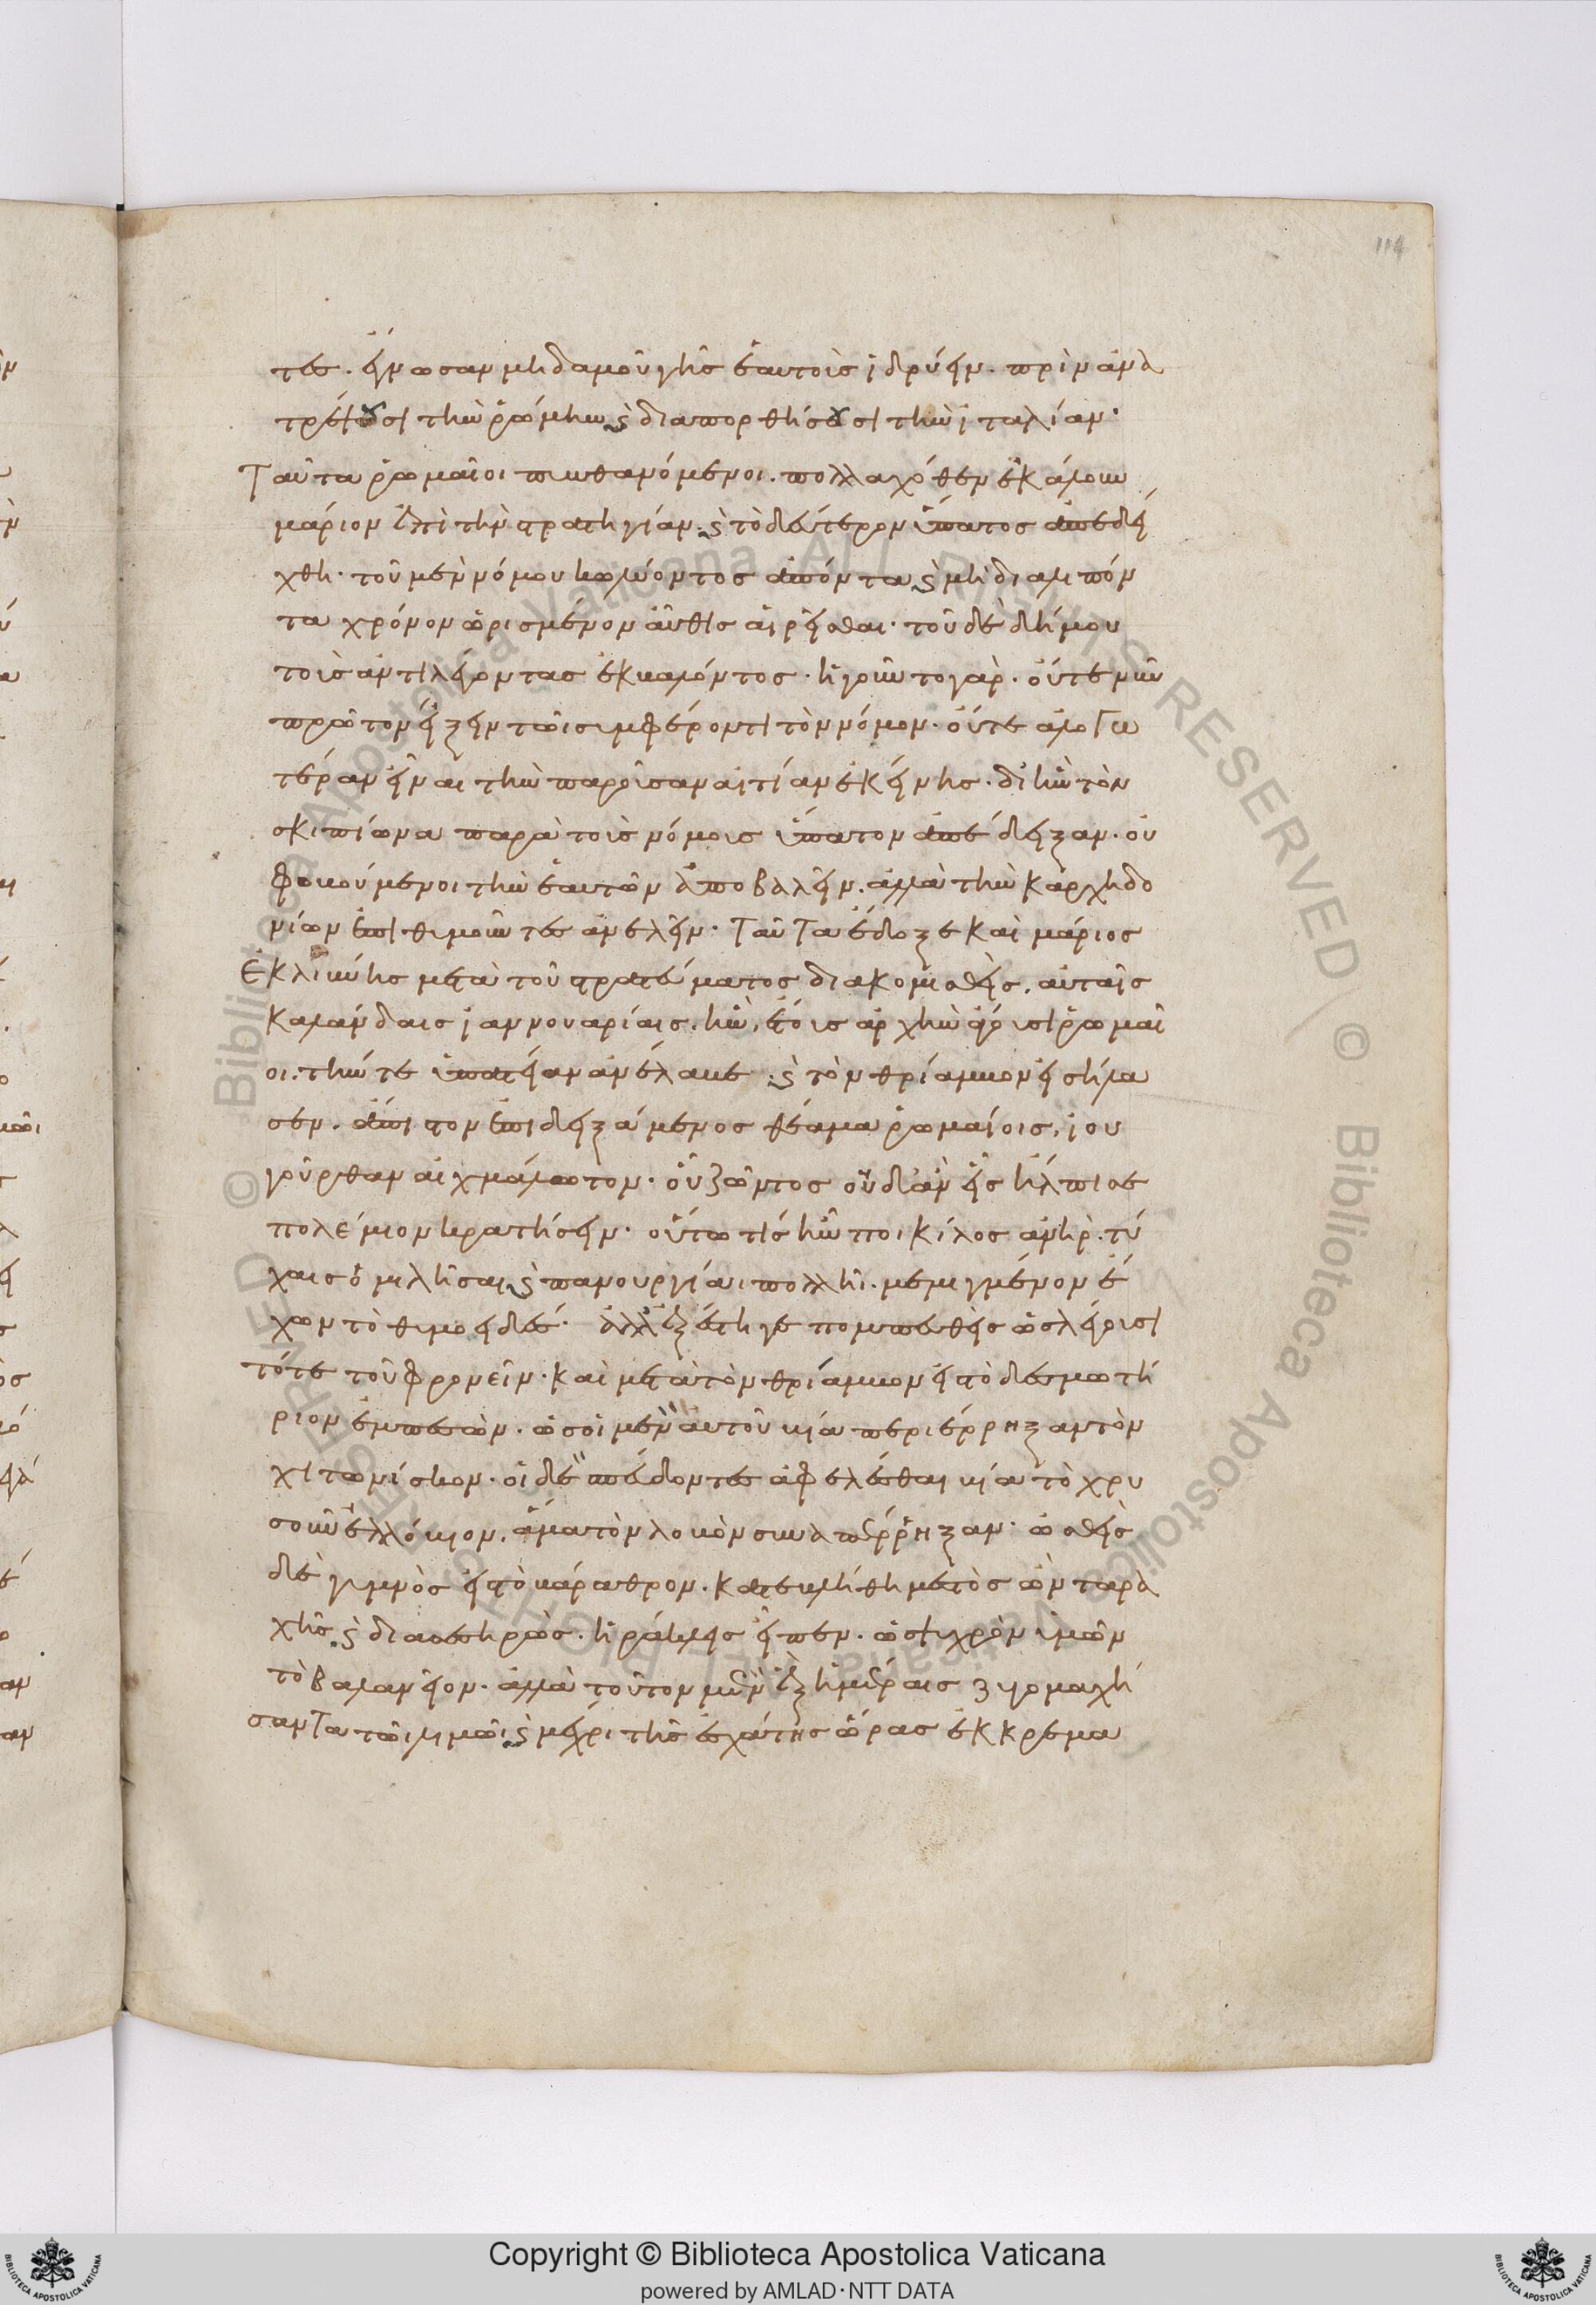 114
τες. ἔγνωσαν μηδαμοῦ γῆς ἑαυτοὺς ἱδρύειν. πρὶν ἀνα
τρέψουσι τὴν ῥώμην καὶ διαπορθήσουσι τὴν ἰταλίαν.
Ταῦτα ῥωμαῖοι πυνθανόμενοι. πολλαχόθεν ἐκάλουν
μάριον ἐπὶ τὴν στρατηγίαν. καὶ τὸ δεύτερον ὕπατος ἀπεδεί
χθη. τοῦ μὲν νόμου κωλύοντος ἀπόντα καὶ μὴ διαλιπόν
τα χρόνον ὡρισμένον αὖθις αἱρεῖσθαι. τοῦ δὲ δήμου
τοὺς ἀντιλέγοντας ἐκβαλόντος. ἡγοῦντο γὰρ. οὔτε νῦν
πρῶτον εἴξειν τῶι συμφέροντι τὸν νόμον. οὔτε ἀλογω
τέραν εἶναι τὴν παροῦσαν αἰτίαν ἐκείνης. δι' ἣν τὸν
σκιπίωνα παρὰ τοὺς νόμους ὕπατον ἀπέδειξαν. οὐ
φοβούμενοι τὴν ἑαυτῶν ἀποβαλεῖν. ἀλλὰ τὴν καρχηδο
νίων ἐπιθυμοῦντες ἀνελεῖν. Ταῦτα ἔδοξε καὶ μάριος
ἐκ λιβύης μετὰ τοῦ στρατεύματος διακομισθεὶς. αὐταῖς
καλάνδαις ἰαννουαρίαις. ἣν, ἔτους ἀρχὴν ἄγουσι ῥωμαῖ
οι. τήν τε ὑπατείαν ἀνέλαβε. καὶ τὸν θρίαμβον εἰσήλα
σεν. ἄπιστον ἐπιδειξάμενος θέαμα ῥωμαίοις, ἰου
γούρθαν αἰχμάλωτον. οὗ ζῶντος οὐδ' ἂν εἷς ἤλπισε
πολέμιον κρατήσειν. οὕτω τίς ἦν ποικίλος ἀνὴρ. τύ
χαις ὁμιλῆσαι καὶ πανουργίαι πολλῆι. μεμιγμένον ἔ
χων τὸ θυμοειδές. ἀλλ' ἐξέστη γε πομπευθεὶς ὡς λέγουσι
τότε τοῦ φρονεῖν. καὶ μετὰ τὸν θρίαμβον εἰς τὸ δεσμωτή
ριον ἐμπεσὼν. ὡς οἱ μὲν αὐτοῦ βίαι περιέρρηξαν τὸν
χιτωνίσκον. οἱ δὲ σπεύδοντες ἀφελέσθαι βίαι τὸ χρυ
σοῦν ἐλλόβιον. ἅμα τὸν λοβὸν συναπέρρηξαν. ὠσθεὶς
δὲ γυμνὸς εἰς τὸ βάραθρον. κατεβλήθη μεστὸς ὢν ταρα
χῆς καὶ διασεσηρὼς. ἡράκλεις εἶπεν. ὡς ψυχρὸν ὑμῶν
τὸ βαλανεῖον. ἀλλὰ τοῦτον μὲν ἓξ ἡμέραις ζυγομαχή
σαντα τῶι λιμῶι καὶ μέχρι τῆς ἐσχάτης ὥρας ἐκκρεμα
Copyright © Biblioteca Apostolica Vaticana
powered by AMLAD·NTT DATA